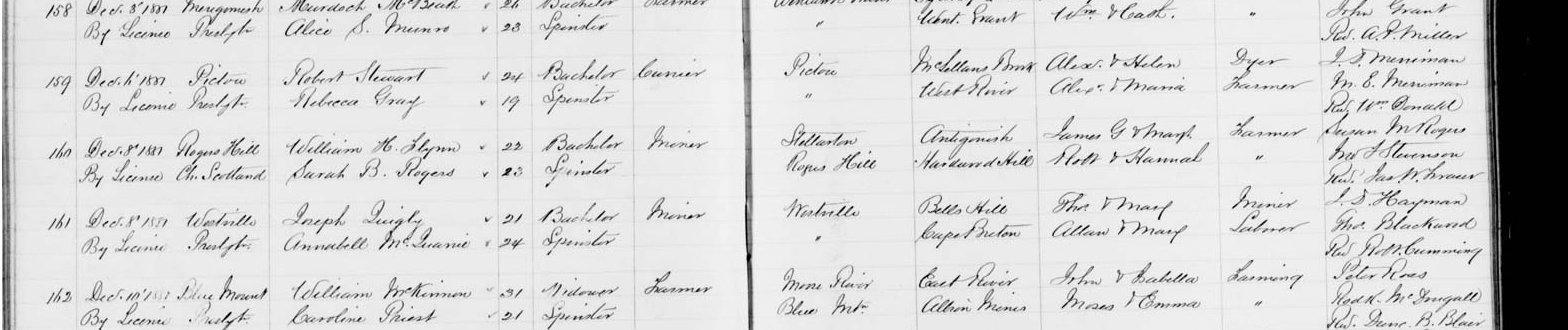 158 Dec. 3' 1887 Merigomish Murdoch McBeath " 26 Bachelor Farmer
By Licence Presbyt. Alice S. Munro " 23 Spinster " Cent. Grant Wm. & Cath. " John Grant
Rev. A. P. Miller
159 Dec. 6' 1887 Pictou Robert Stewart " 24 Bachelor Currier Pictou McLellans Brook Alex. & Helen Dyer J. D. Merriman
By Licence Presbyt. Rebecca Gray " 19 Spinster " West River Alexr. & Maria Farmer M. E. Merriman
Rev. Wm Donald
160 Dec. 8' 1887 Rogers Hill William H. Flynn " 22 Bachelor Miner Stellarton Antigonish James G & Margt Farmer Susan M Rogers
By License Ch. Scotland Sarah B. Rogers " 23 Spinster Rogers Hill Hardwood Hill Robt & Hannah " Jno J Stevenson
Rev. Jas. W. Fraser
161 Dec. 8' 1887 Westville Joseph Quigly " 21 Bachelor Miner Westville Bells Hill Thos. & Mary Miner J. D. Hayman
By Licence Presbyt. Annabell McQuarrie " 24 Spinster " Cape Breton Allan & Mary Laborer Thos. Blackwood
Rev Robt. Cumming
162 Dec. 10' 1887 Blue Mount William McKinnon " 31 Widower Farmer Moose River East River John & Isabella Farming Peter Ross
By Licence Presbyt. Caroline Priest " 21 Spinster Blue Mt. Albion Mines Moses & Emma " Rodk. McDougall
Rev. Dunc. B. Blair